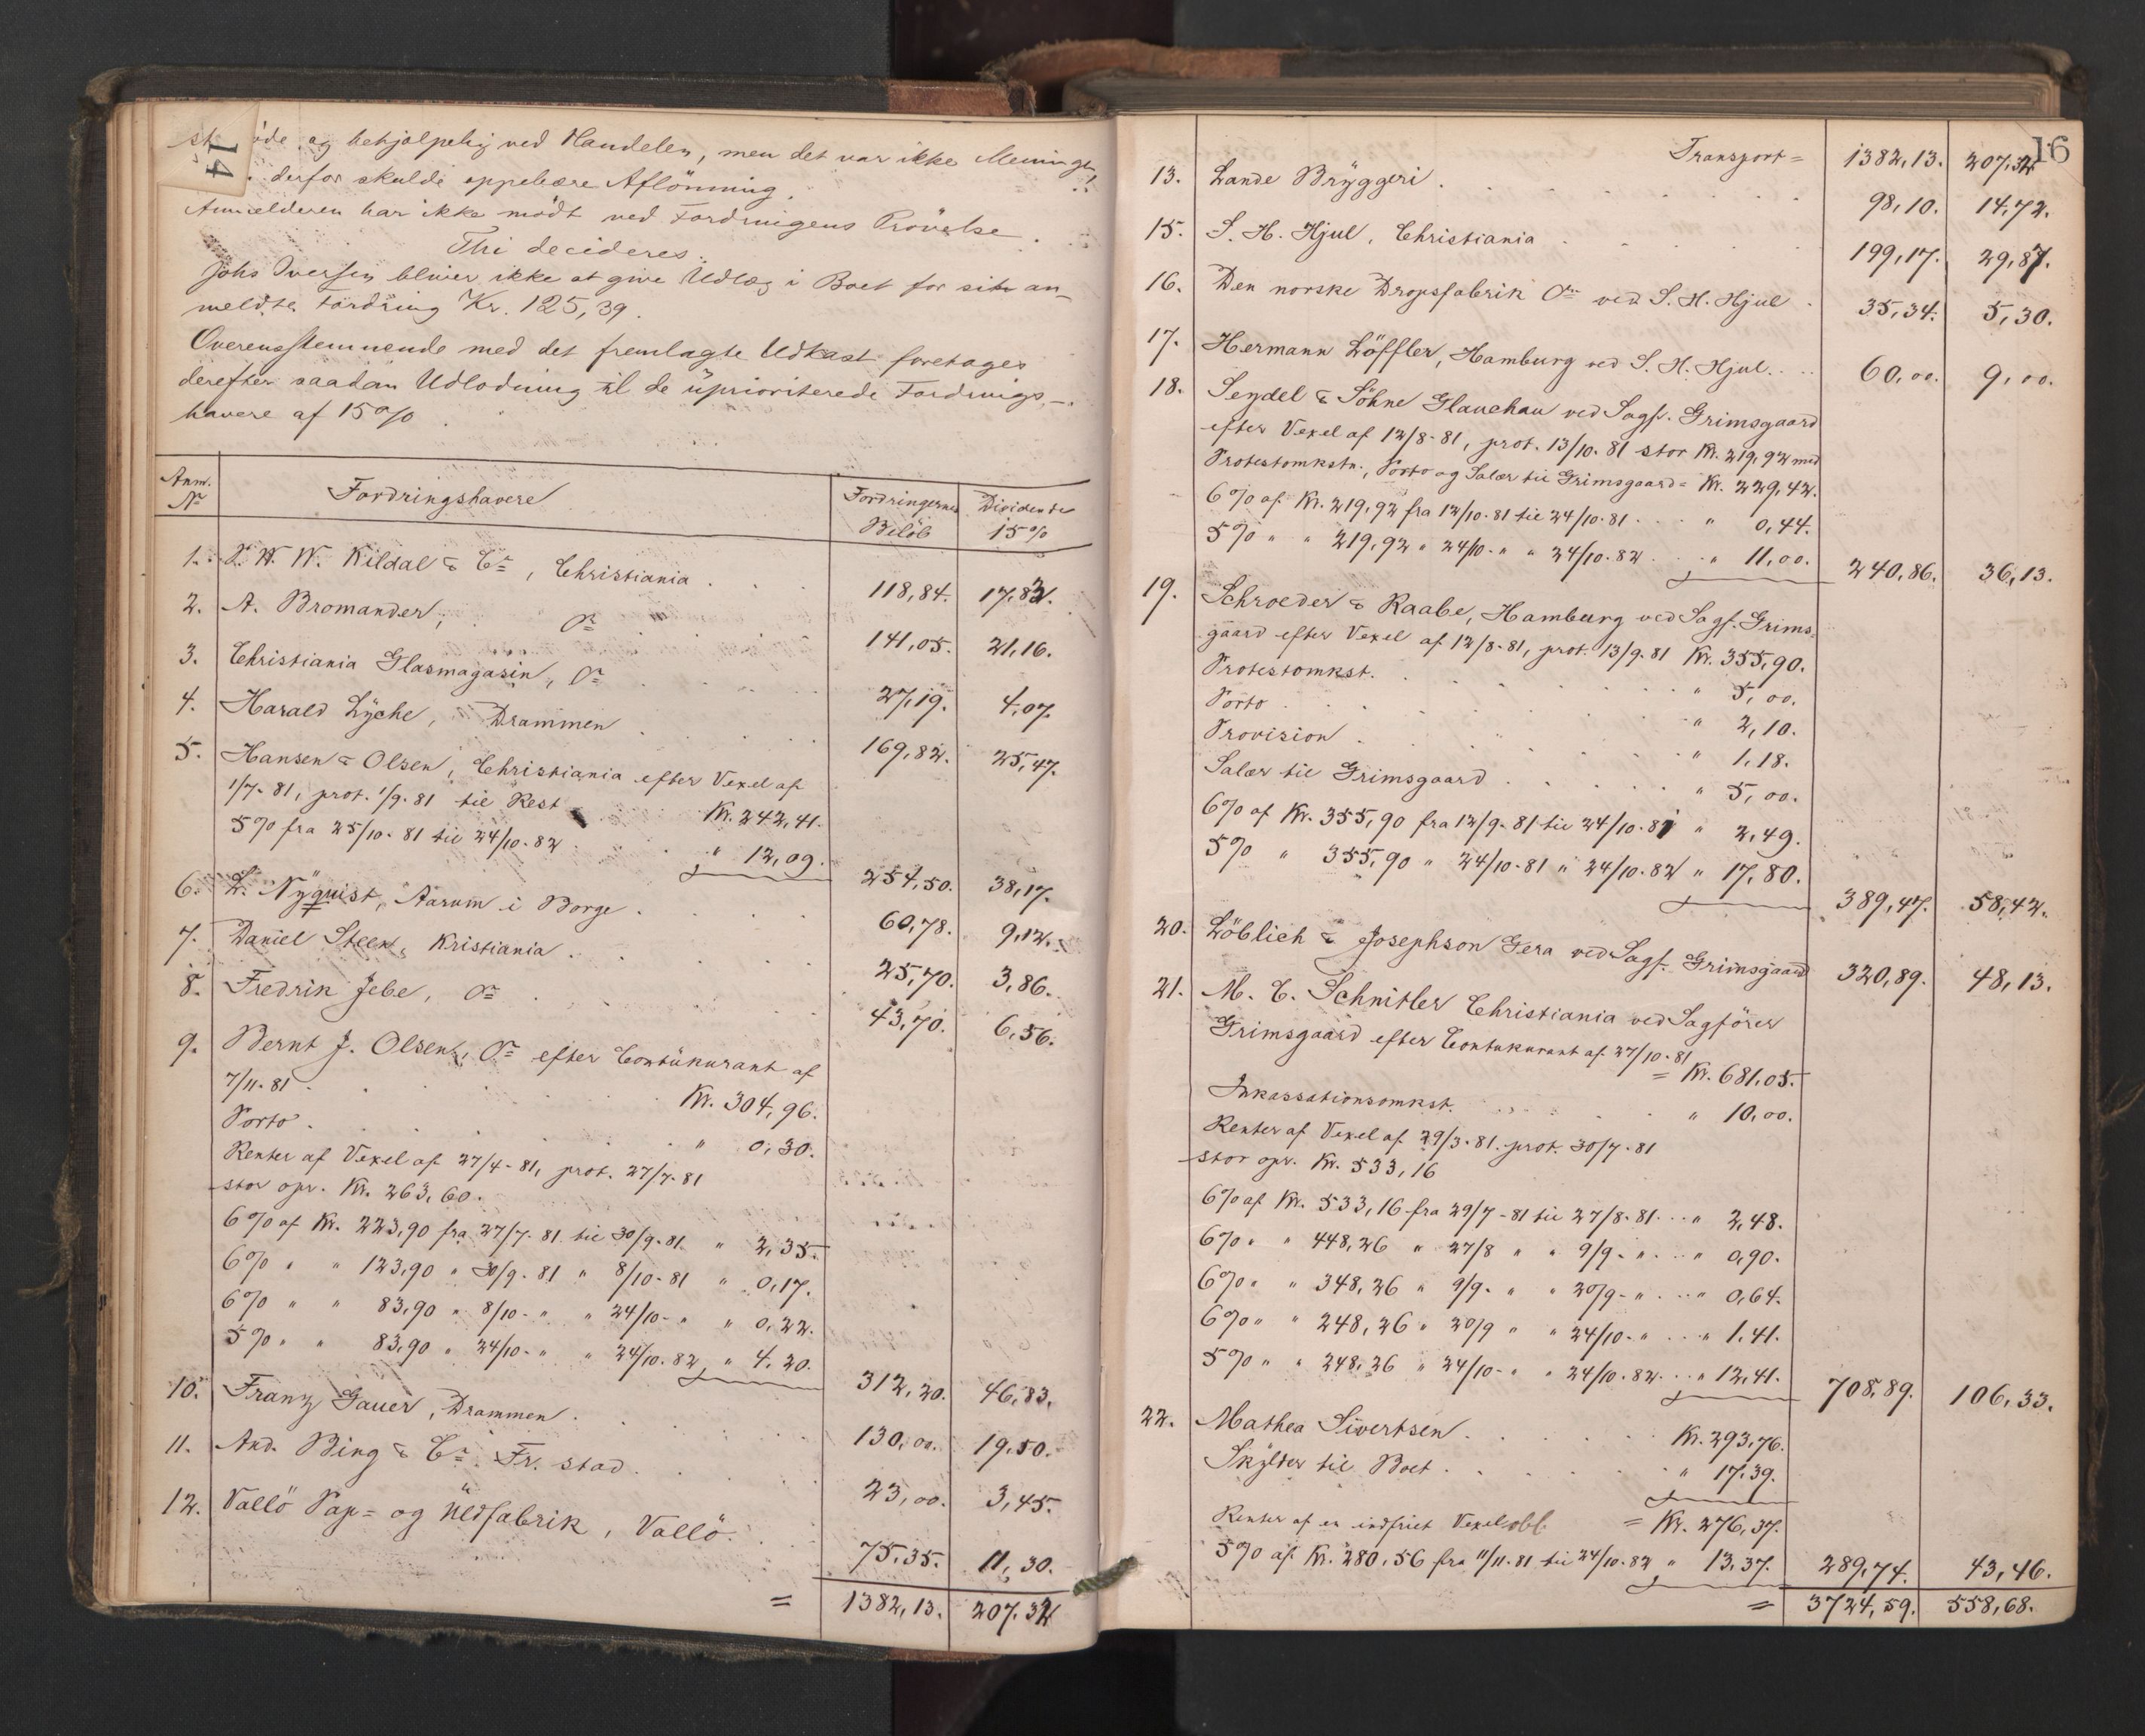 14
og behjælpelig ved Handelen, men det var ikke Meningen
derfor skulde oppebære Aflönning.
Anmelderen har ikke mödt ved Fordringens Prövelse.
Thi decideres:
Johs Iversen bliver ikke at give Udlæg i Boet for sin an-
meldte Fordring Kr. 125,39.
Overensstemmende med det fremlagte Udkast foretages
derefter saadan Udlodning til de uprioriterede Fordrings-
havere af 15%.
Anm. No Fordringshavere Fordringernes Belöb Dividende 15%
1. P. W. W. Kildal & Co, Christiania . . . 118,84. 17,82.
2. A. Bromander, Do . . . 141,05. 21,16.
3. Christiania Glasmagasin, Do . . . 27,19. 4,07.
4. Harald Lyche, Drammen . . . 169,82. 25,47.
5. Hansen & Olsen, Christiania efter Vexel af
1/7-81, prot. 1/9-81 til Rest Kr. 242,41.
5% fra 25/10-81 til 24/10-82 . . " 12,09. 254,50. 38,17.
6. L. Nyquist, Aarum i Borge . . . 60,78. 9,12.
7. Daniel Steen, Kristiania . . . 25,70. 3,86.
8. Fredrik Jebe, Do . . . 43,70. 6,56.
9. Bernt J. Olsen, Do efter Contükurant af
7/11-81 . . . Kr. 304,96.
Porto . . . " 0,30.
Renter af Vexel af 27/4-81, prot. 27/7-81
stor opr. Kr. 263,60.
6% af Kr. 223,90 fra 27/7-81 til 30/9-81 " 2,35.
6% " " 123,90 " 30/9-81 " 8/10-81 " 0,17.
6% " " 83,90 " 8/10- " " 24/10- " " 0,22.
5% " " 83,90 " 24/10- " " 24/10-82 " 4,20. 312,20. 46,83.
10. Franz Gauer, Drammen . . . 130,00. 19,50.
11. And. Bing & Co. Fr. stad . . . 23,00. 3,45.
12. Vallö Pap- og Uldfabrik, Vallö . . 75,35. 11,30.
= 1382,13. 207,32
16
Transport = 1382,13. 207,32
13. Lande Bryggeri . . . 98,10. 14,72.
15. S. H. Hjul, Christiania . . . 199,17. 29,87.
16. Den norske Dropsfabrik Do ved S. H. Hjul . 35,34. 5,30.
17. Hermann Löffler, Hamburg ved S. H. Hjul . . 60,00. 9,00.
18. Seydel & Söhne Glauchau ved Sagf. Grimsgaard
efter Vexel af 12/8-81, prot. 13/10-81 stor Kr. 219,92 med
Protestomkstn., Porto og Salær til Grimsgaard = Kr. 229,42.
6% af Kr. 219,92 fra 12/10-81 til 24/10-81 . . " 0,44.
5% " " 219,92 " 24/10- " " 24/10-82 . . " 11,00. 240,86. 36,13.
19. Schroeder & Raabe, Hamburg ved Sagf. Grims-
gaard efter Vexel af 12/8-81, prot. 13/9-81 Kr. 355,90.
Protestomkst. . . . " 5,00.
Porto . . . " 2,10.
Provision . . . " 1,18.
Salær til Grimsgaard . . . " 5,00.
6% af Kr. 355,90 fra 12/9-81 til 24/10-81 " 2,49.
5% " 355,90 " 24/10-81 " 24/10-82 " 17,80. 389,47. 58,42.
20. Löblich & Josephson Gera ved Sagf. Grimsgaard 320,89. 48,13.
21. M. C. Schnitler Christiania ved Sagförer
Grimsgaard efter Contukurant af 27/10-81
= Kr. 681,05.
Inkassationsomkst. . . . " 10,00.
Renter af Vexel af 29/3-81. prot. 30/7-81
stor opr. Kr. 533,16
6% af Kr. 533,16 fra 29/7-81 til 27/8-81 . . " 2,48.
6% " " 448,26 " 27/8 " " 9/9- " . . " 0,90.
6% " " 348,26 " 9/9- " " 20/9- " . . " 0,64.
6% " " 248,26 " 20/9 " " 24/10- " . . " 1,41.
5% " " 248,26 " 24/10- " " 24/10-82 . . " 12,41. 708,89. 106,33.
22. Mathea Sivertsen . . . Kr. 293,76.
Skylder til Boet . . . " 17,39.
= Kr. 276,37.
Renter af en indfriet Vexelobl.
5% af Kr. 280,56 fra 11/11-81 til 24/10-82 " 13,37. 289,74. 43,46.
= 3724,59. 558,68.